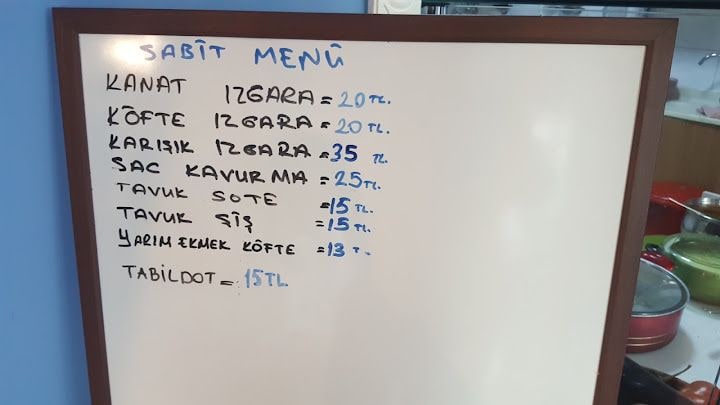 SABİT MENÜ
KANAT IZGARA = 20 TL.
KÖFTE IZGARA = 20 TL.
KARIŞIK IZGARA = 35 TL.
SAC KAVURMA = 25 TL.
TAVUK SOTE = 15 TL.
TAVUK ŞİŞ = 15 TL.
YARIM EKMEK KÖFTE = 13 T.
TABİLDOT = 15 TL